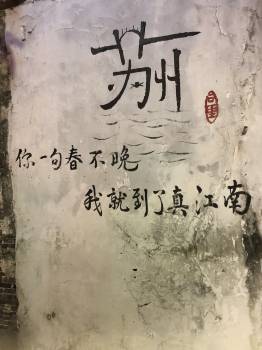 苏州
你一句春不晚
我就到了真江南